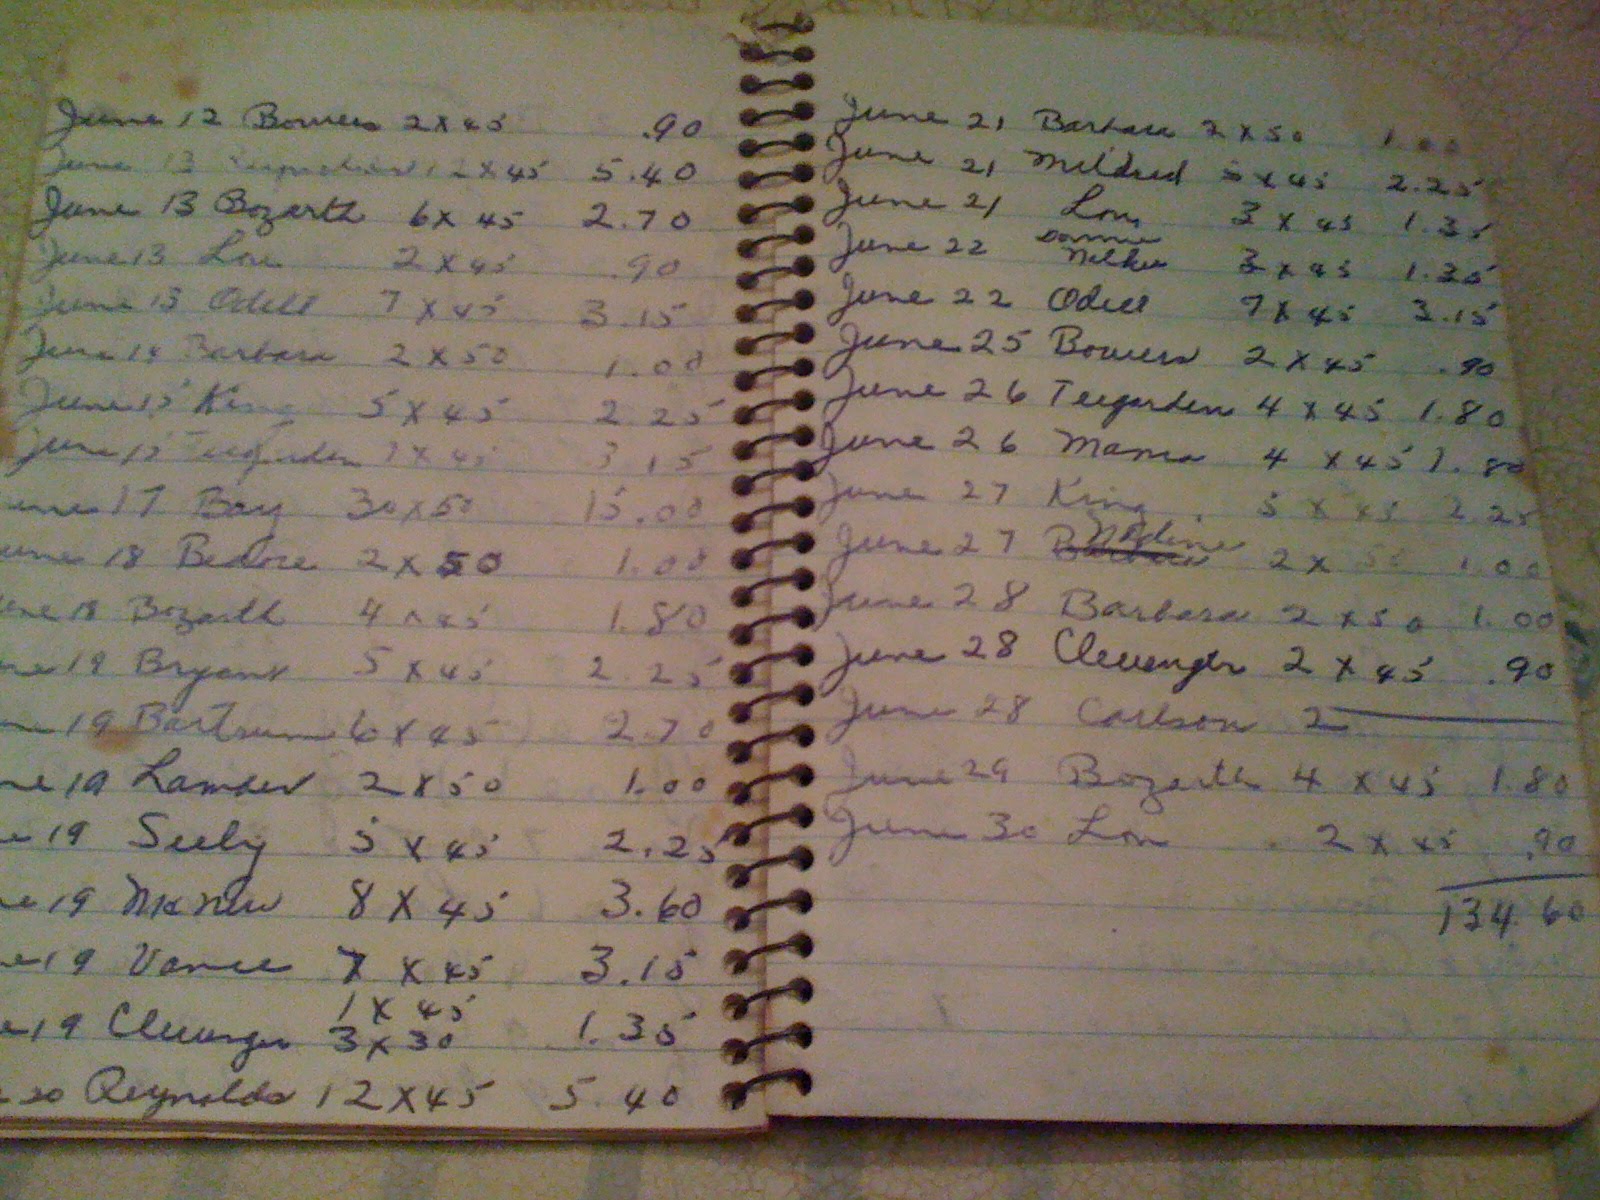 June 12 Bowers 2 X 45 .90
June 13 Reynolds 12 X 45 5.40
June 13 Bozarth 6 X 45 2.70
June 13 Lou 2 X 45 .90
June 13 Odell 7 X 45 3.15
June 14 Barbara 2 X 50 1.00
June 15 King 5 X 45 2.25
June 15 Teegarden 7 X 45 3.15
une 17 Bay 30 X 50 15.00
une 18 Bedore 2 X 50 1.00
une 18 Bozarth 4 X 45 1.80
ne 19 Bryant 5 X 45 2.25
ne 19 Bartrum 6 X 45 2.70
ne 19 Lamber 2 X 50 1.00
e 19 Seely 5 X 45 2.25
e 19 8 X 45 3.60
e 19 Vance 7 X 45 3.15
1 X 45
e 19 Clevenger 3 X 30 1.35
20 Reynolds 12 X 45 5.40
June 21 Barbara 2 X 50 1.00
June 21 Mildred 5 X 45 2.25
June 21 Lou 3 X 45 1.35
June 22 3 X 45 1.35
June 22 Odell 7 X 45 3.15
June 25 Bowers 2 X 45 .90
June 26 Teegarden 4 X 45 1.80
June 26 Mama 4 X 45 1.80
June 27 King 5 X 45 2.25
June 27 2 X 50 1.00
June 28 Barbara 2 X 50 1.00
June 28 Clevengr 2 X 45 .90
June 28 Carlson 2
June 29 Bozarth 4 X 45 1.80
June 30 Lou 2 X 45 .90
134.60